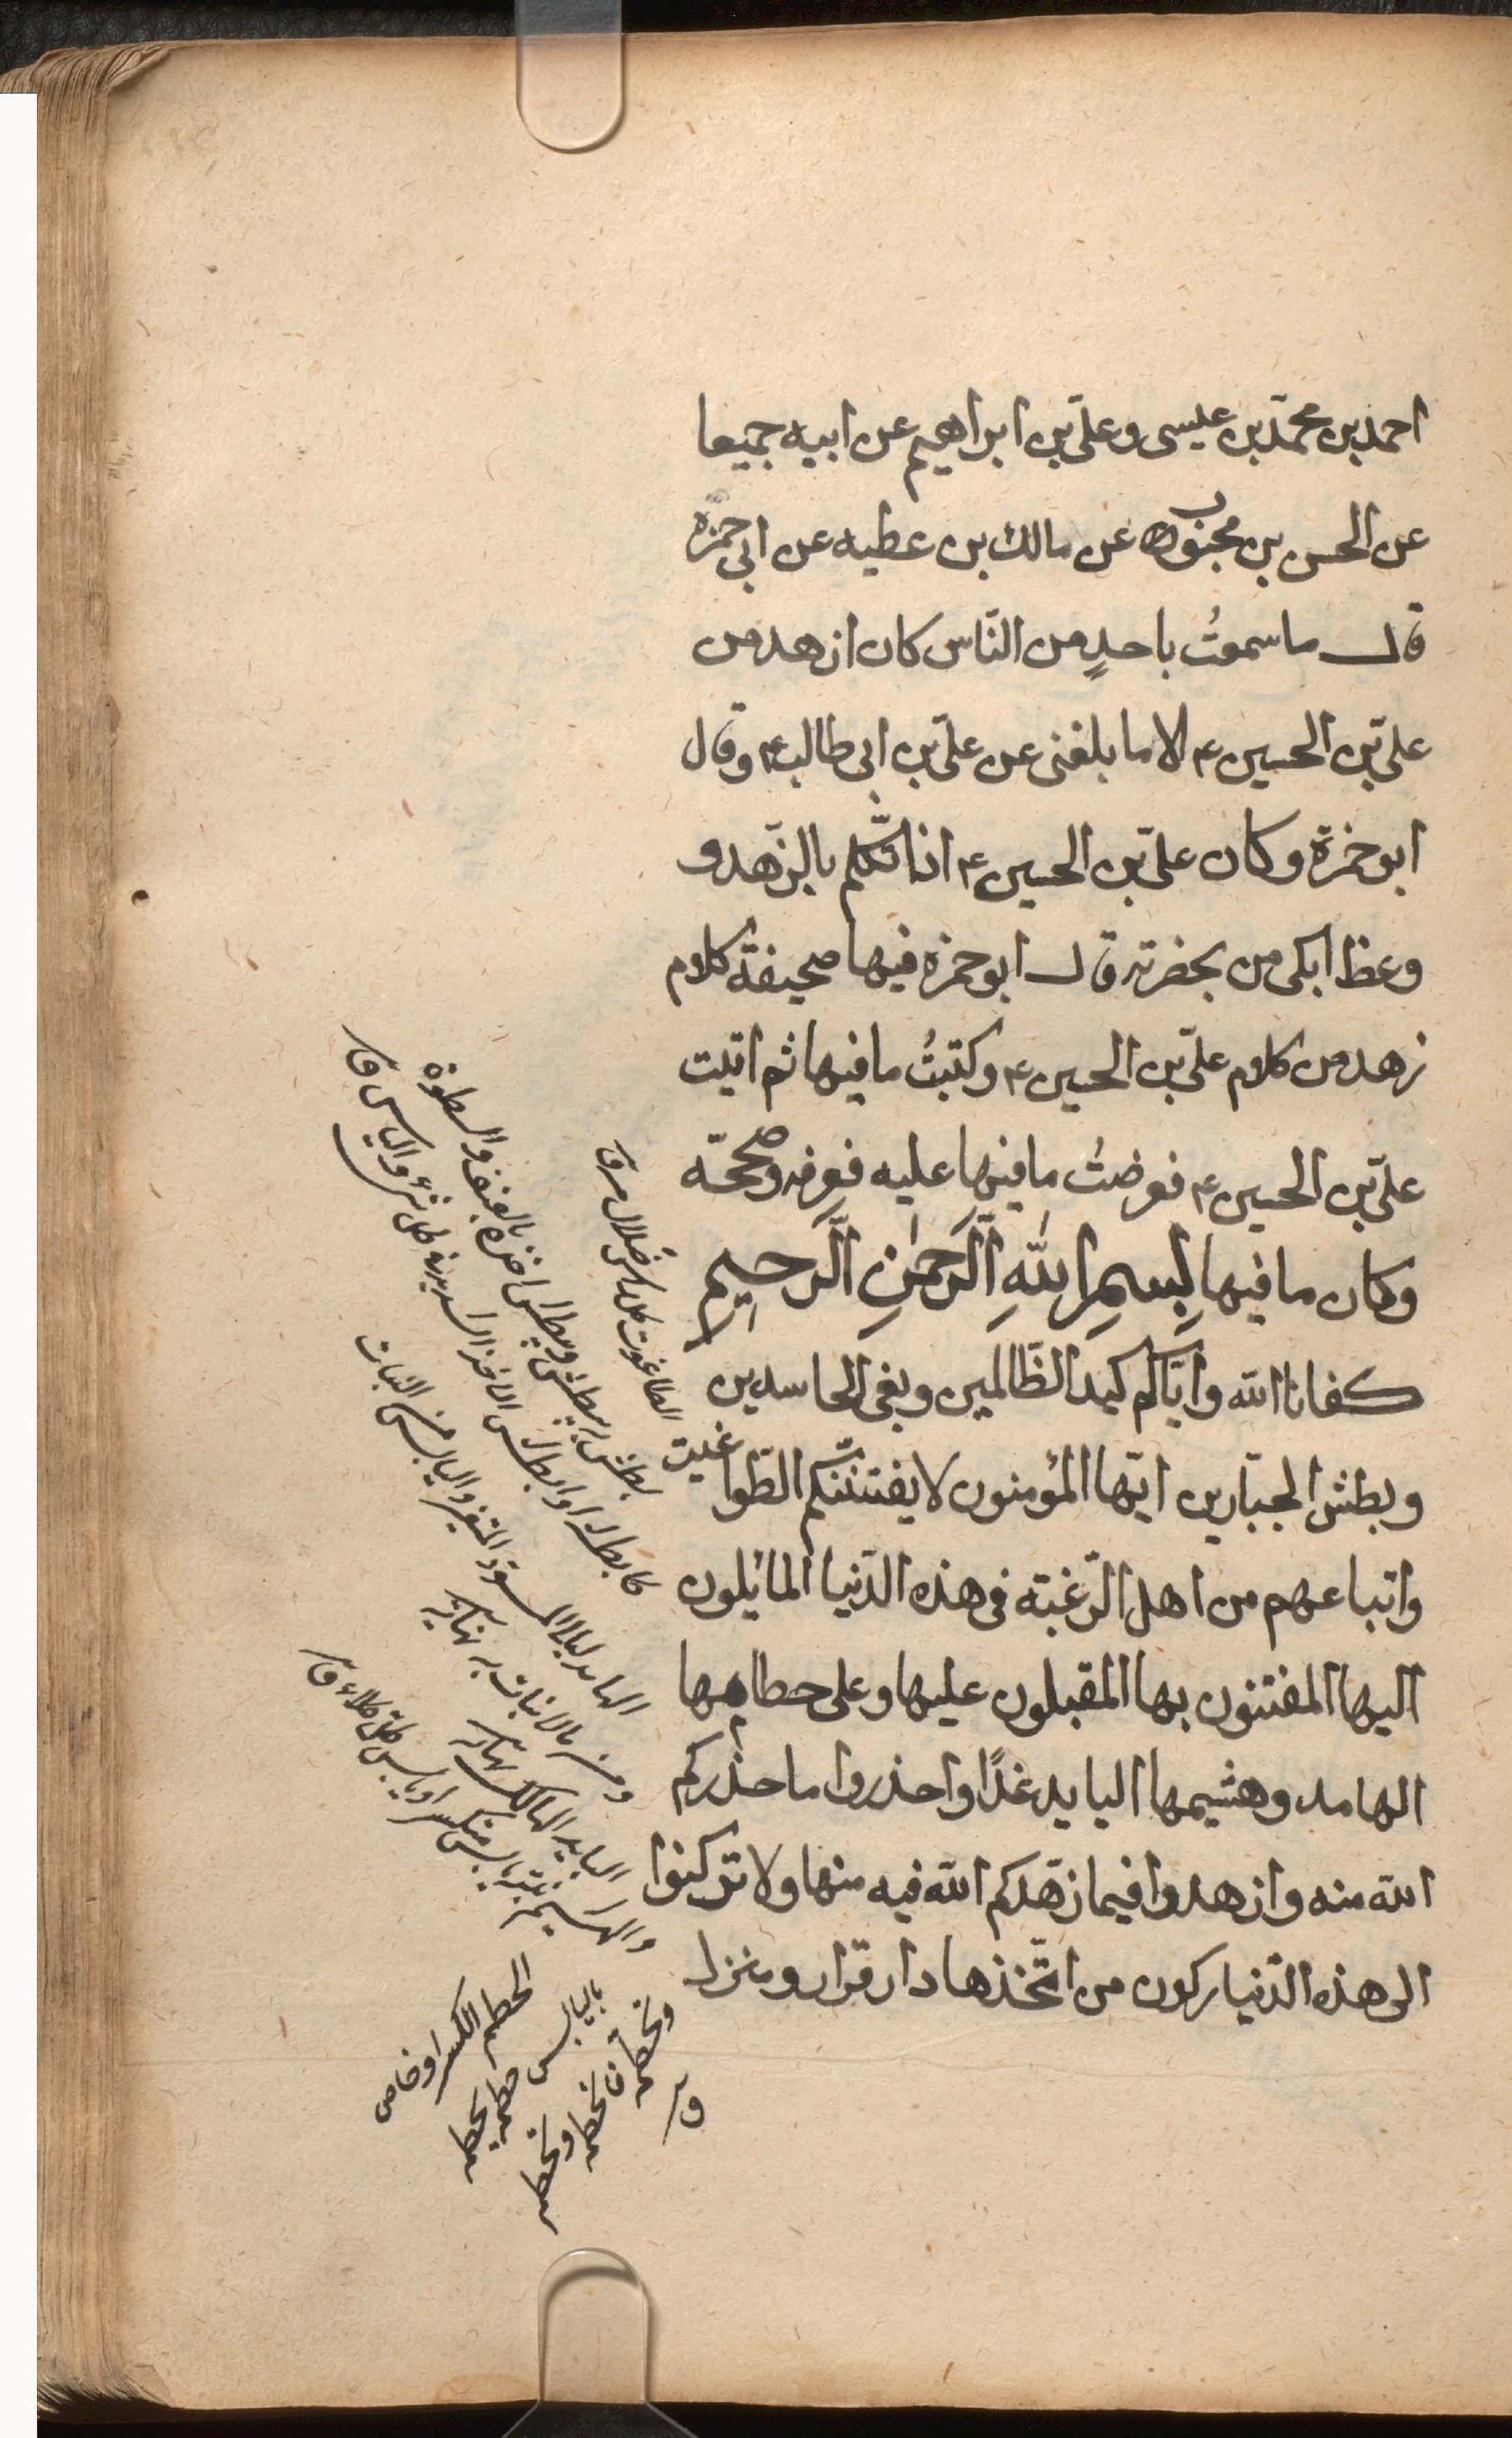 احمد بن محمّد بن عليسى وعلىّ بن ابراهيم عن ابيه جميعا
عن الحسن بن محبوب عن مالك بن عطيه عن ابى حمزة
قال ما سمعتُ باحدٍ من النّاس كان ازهد من
علىّ بن الحسين ع الا ما بلغنى عن علىّ بن ابى طالب ع وقال
ابو حمزة وكان علىّ بن الحسين ع اذا تكلّم بالزّهد و
وعظ ابكى من بحضرته قال ابو حمزة فيها صحيفة كلام
زهد من كلام علىّ بن الحسين ع وكتبتُ ما فيها ثم اتيت
علىّ بن الحسين ع فعرضتُ ما فيها عليه فعرفه وصححّه
وكان ما فيها بِسمِ اللهِ الَّرحمٰنِ الَّرحِيم
كفانا الله وايّاكم كيد الظّالمين وبغى الحاسدين
وبطش الجبّارين ايّها المؤمنون لا يفتننّكم الطّواغيت
واتباعهم من اهل الرّغبته فى هذه الدّنيا المائلون
اليها المفتنون بها المقبلون عليها وعلى حطامها
الهامد وهشيمها البايد غدًا واحذروا ما حذّركم
الله منه وازهدوا فيما زهّدكم الله فيه منها ولا تركنوا
الى هذه الدّنيا ركون من اتّخذها دار قرار ومنزل
الطاغوت كل راس ضلال
بطش يبطش ويبطش اخذه بالعنف والسطوة
كابطشه او البطش الاخذ الشديد فى كل شئ والباس ق
الهامد البالى المسود المتغير واليابس من النبات
البايد الهالك
والهشيم نبت يابس متكسر او يابس كل كلاء ق
الحطم الكسر او خاص
باليابس حطمه يحطمه
وحطمه فانحطم وتحطم
ق